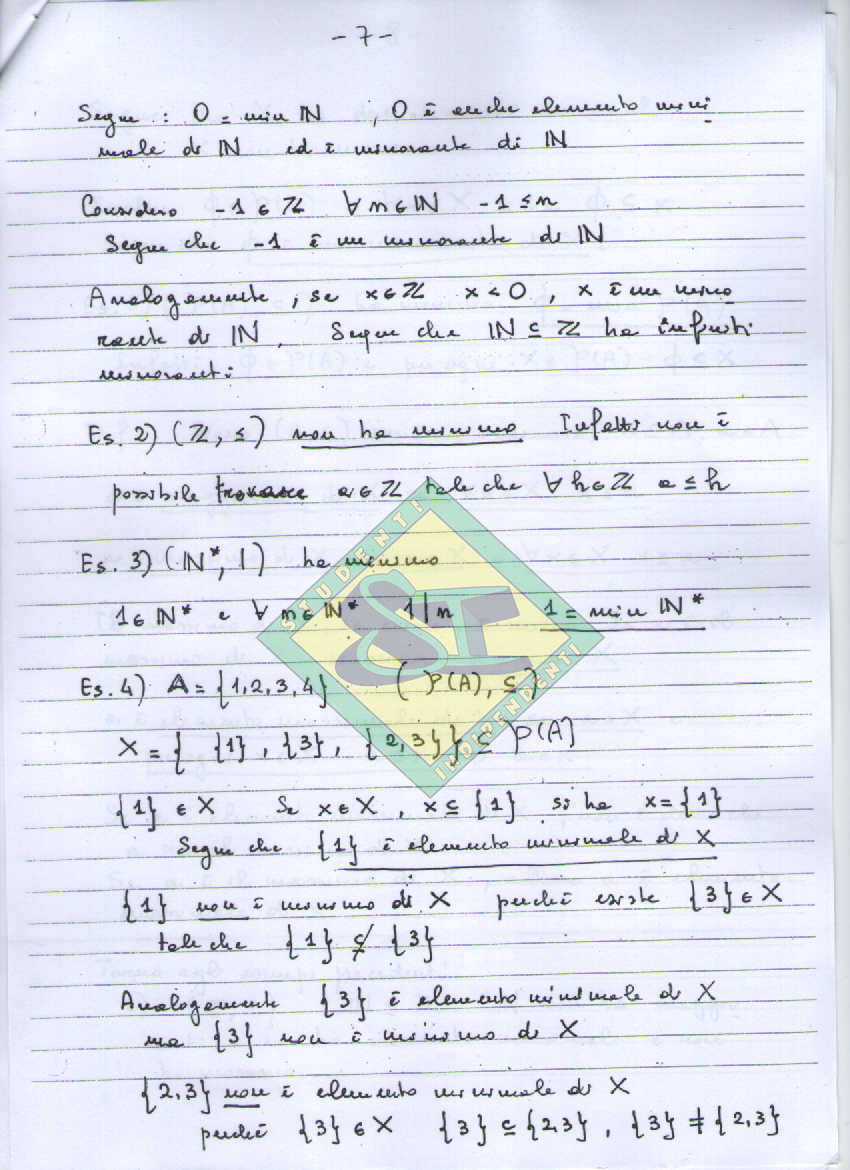 - 7 -
Segue : 0 = min ℕ , 0 è anche elemento mini
male di ℕ ed è minorante di ℕ
Considero -1 ∈ ℤ ∀ n ∈ ℕ -1 ≤ n
Segue che -1 è un minorante di ℕ
Analogamente , se x ∈ ℤ x < 0 , x è un mino
rante di ℕ . Segue che ℕ ⊆ ℤ ha infiniti
minoranti
Es. 2) (ℤ, ≤) non ha minimo Infatti non è
possibile trovare a ∈ ℤ tale che ∀ h ∈ ℤ a ≤ h
Es. 3) (ℕ*, |) ha minimo
1 ∈ ℕ* e ∀ n ∈ ℕ* 1 | n 1 = min ℕ*
Es. 4) A = {1,2,3,4} (P(A), ⊆)
X = { {1} , {3} , {2,3} } ⊆ P(A)
{1} ∈ X Se x ∈ X , x ⊆ {1} si ha x = {1}
Segue che {1} è elemento minimale di X
{1} non è minimo di X perché esiste {3} ∈ X
tale che {1} ⊄ {3}
Analogamente {3} è elemento minimale di X
ma {3} non è minimo di X
{2,3} non è elemento minimale di X
perché {3} ∈ X {3} ⊆ {2,3} , {3} ≠ {2,3}
STUDENTI
SI
INDIPENDENTI